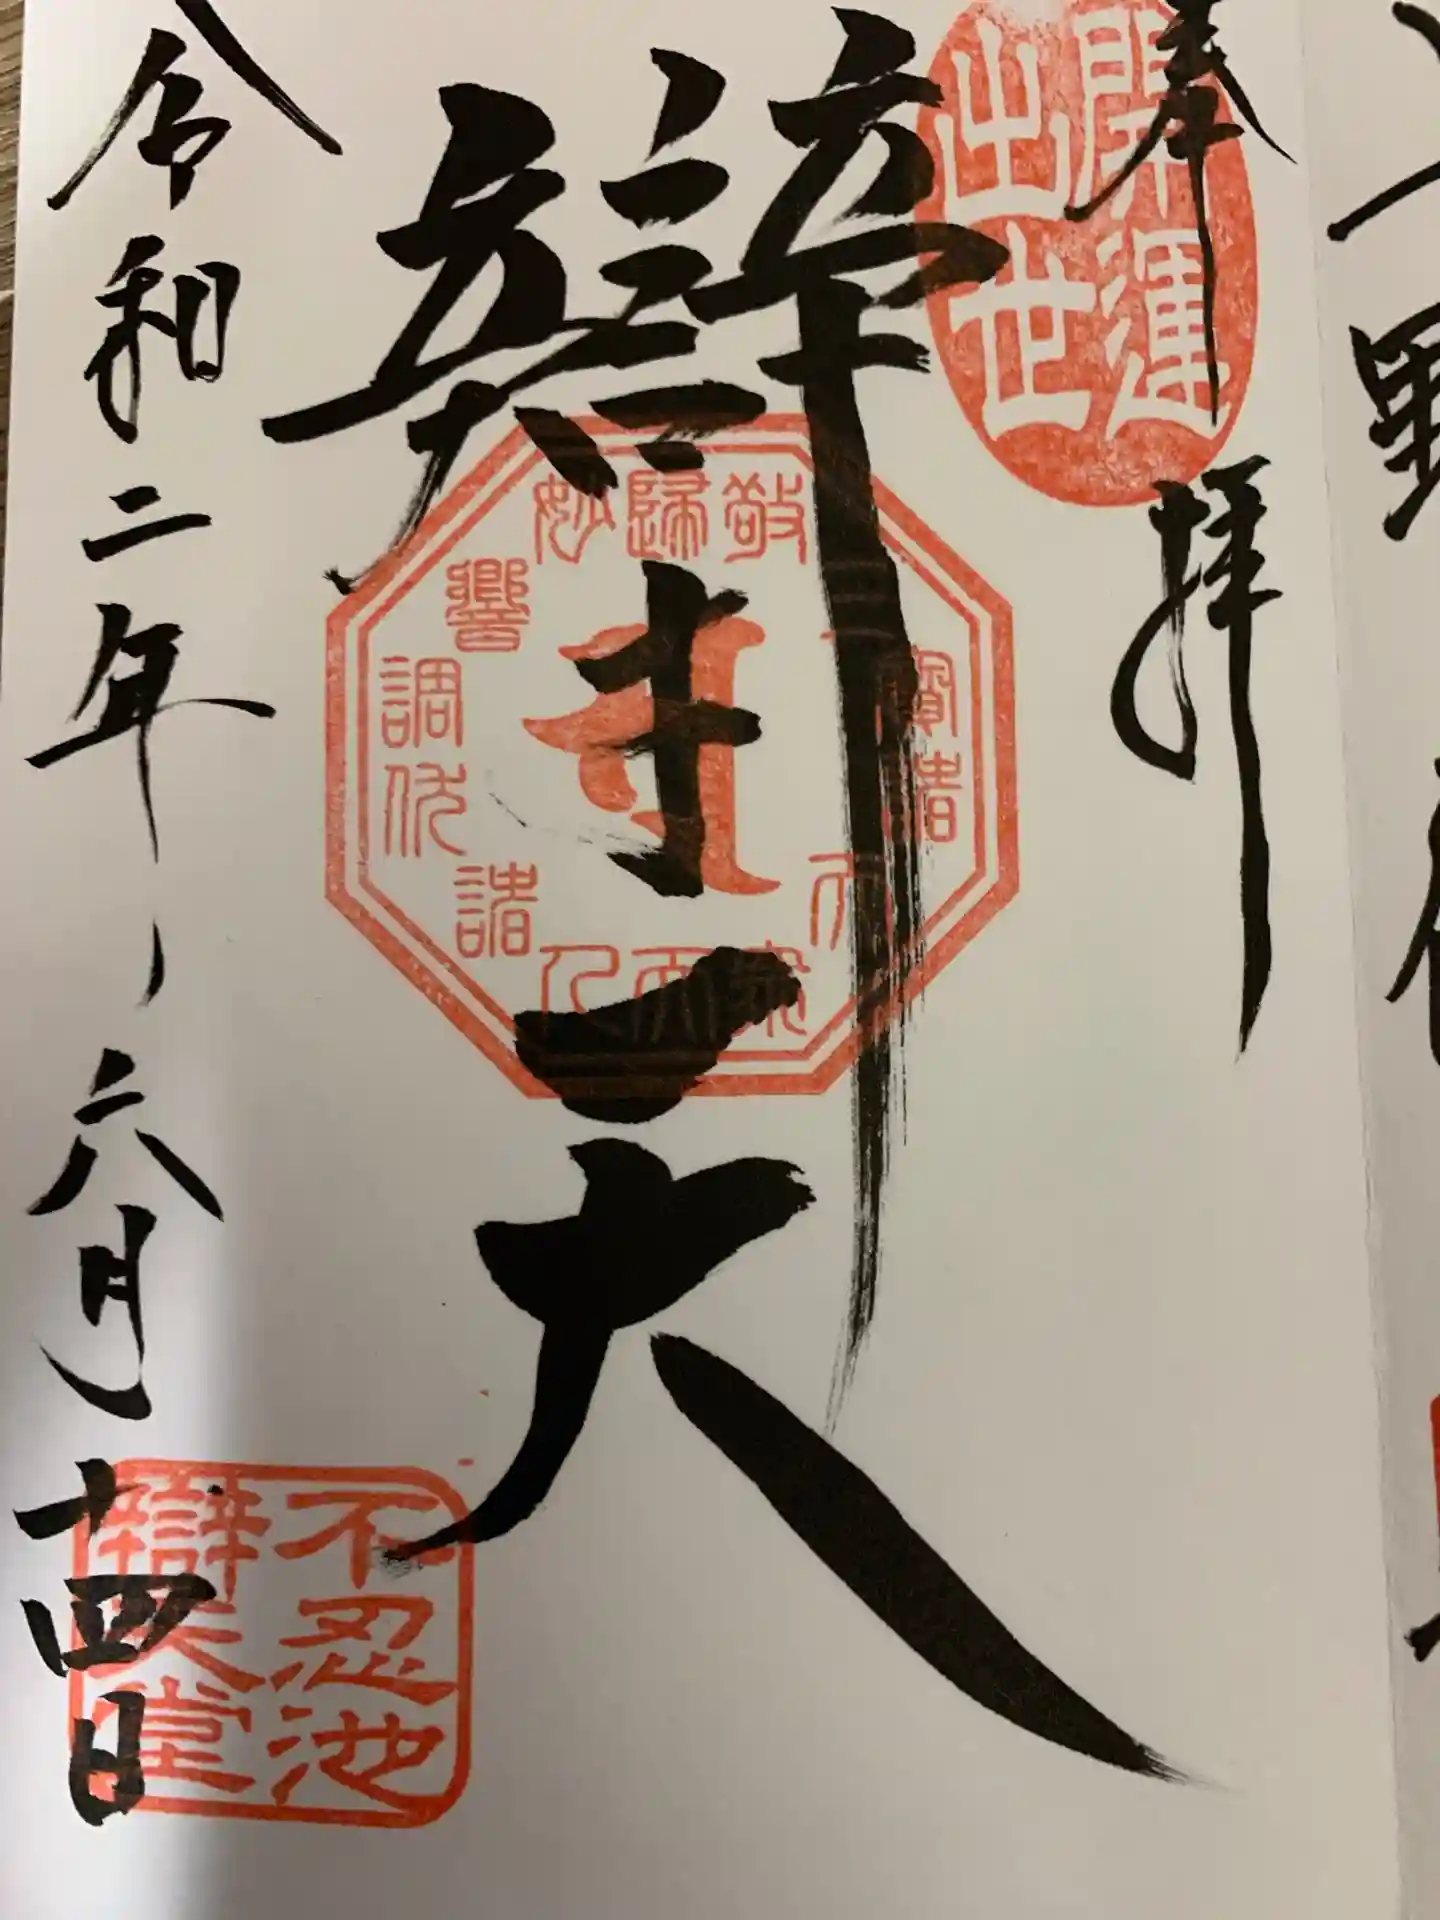 奉拝
開運
出世
辯才天
敬歸妙響
調伏諸
不忍池
辯天堂
令和二年六月十四日
上野